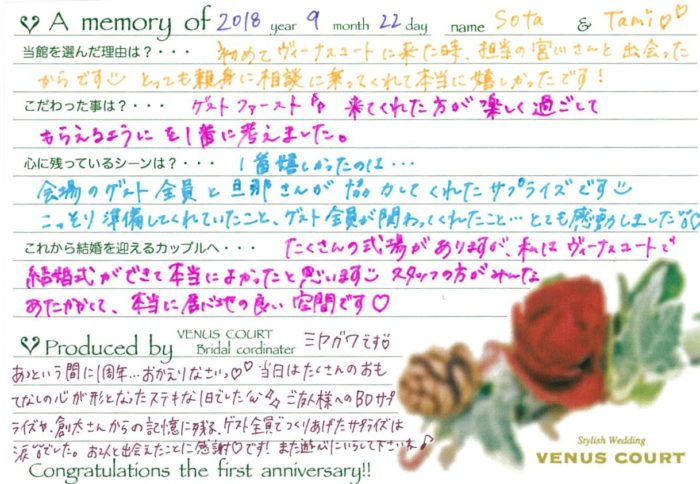 A memory of 2018 year 9 month 22 day name Sota & Tami♡♡
当館を選んだ理由は？・・・ 初めてヴィーナスコートに来た時、担当の宮川さんと出会った
からです とっても親身に相談に乗ってくれて本当に嬉しかったです！
こだわった事は？・・・ ゲストファースト!! 来てくれた方が楽しく過ごして
もらえるように を1番に考えました。
心に残っているシーンは？・・・ 1番嬉しかったのは…
会場のゲスト全員と旦那さんが協力してくれたサプライズです
こっそり準備してくれていたこと、ゲスト全員が関わってくれたこと…とても感動しました
これから結婚を迎えるカップルへ・・・ たくさんの式場がありますが、私はヴィーナスコートで
結婚式ができて本当によかったと思います スタッフの方がみんな
あたたかくて、本当に居心地の良い空間です♡
Produced by VENUS COURT Bridal cordinater ミヤガワです
あっという間に1周年…おかえりなさい♡♡ 当日はたくさんのおも
てなしの心が形となったステキな1日でしたね ご友人様へのBDサプ
ライズや、創太さんからの記憶に残る、ゲスト全員でつくりあげたサプライズは
涙でした。お2人と出会えたことに感謝♡です！また遊びにいらして下さいね♪
Congratulations the first anniversary!!
Stylish Wedding
VENUS COURT